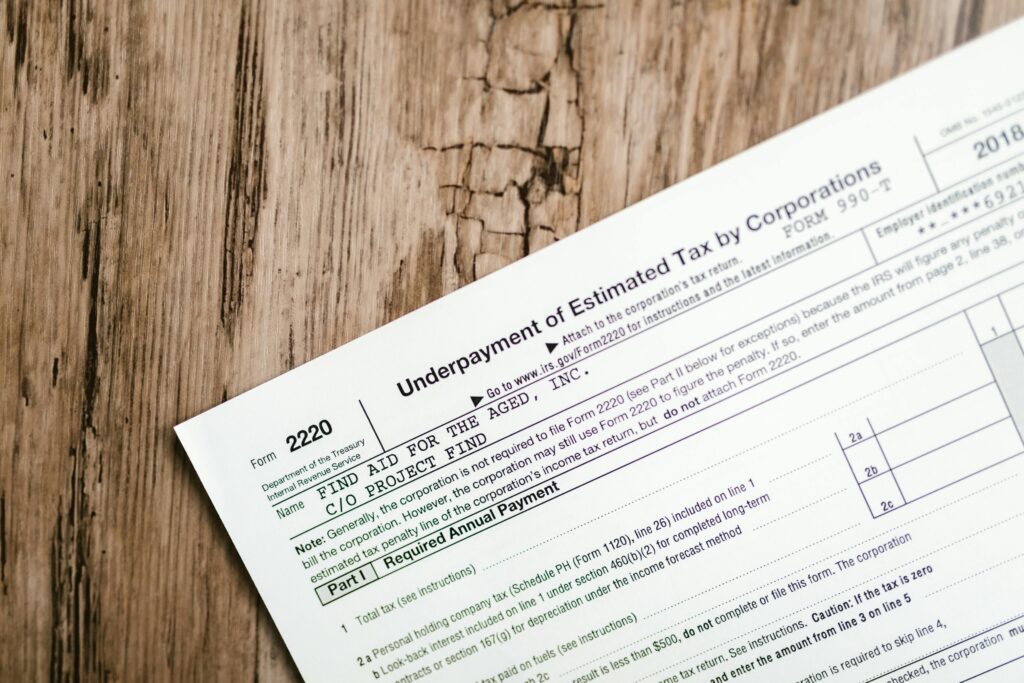 OMB No. 1545-0123
2018
Form 2220
Department of the Treasury
Internal Revenue Service
Underpayment of Estimated Tax by Corporations
FORM 990-T
▶ Attach to the corporation's tax return.
▶ Go to www.irs.gov/Form2220 for instructions and the latest information.
Name
FIND AID FOR THE AGED, INC.
C/O PROJECT FIND
Employer identification
**-***6921
Note: Generally, the corporation is not required to file Form 2220 (see Part II below for exceptions) because the IRS will figure any penalty
bill the corporation. However, the corporation may still use Form 2220 to figure the penalty. If so, enter the amount from page 2, line 38,
estimated tax penalty line of the corporation's income tax return, but do not attach Form 2220.
Part I Required Annual Payment
1 Total tax (see instructions) 1
2a Personal holding company tax (Schedule PH (Form 1120), line 26) included on line 1 2a
b Look-back interest included on line 1 under section 460(b)(2) for completed long-term
contracts or section 167(g) for depreciation under the income forecast method 2b
tax paid on fuels (see instructions) 2c
2c
result is less than $500, do not complete or file this form. The corporation
income tax return. See instructions. Caution: If the tax is zero
and enter the amount from line 3 on line 5
corporation is required to skip line 4,
checked, the corporation